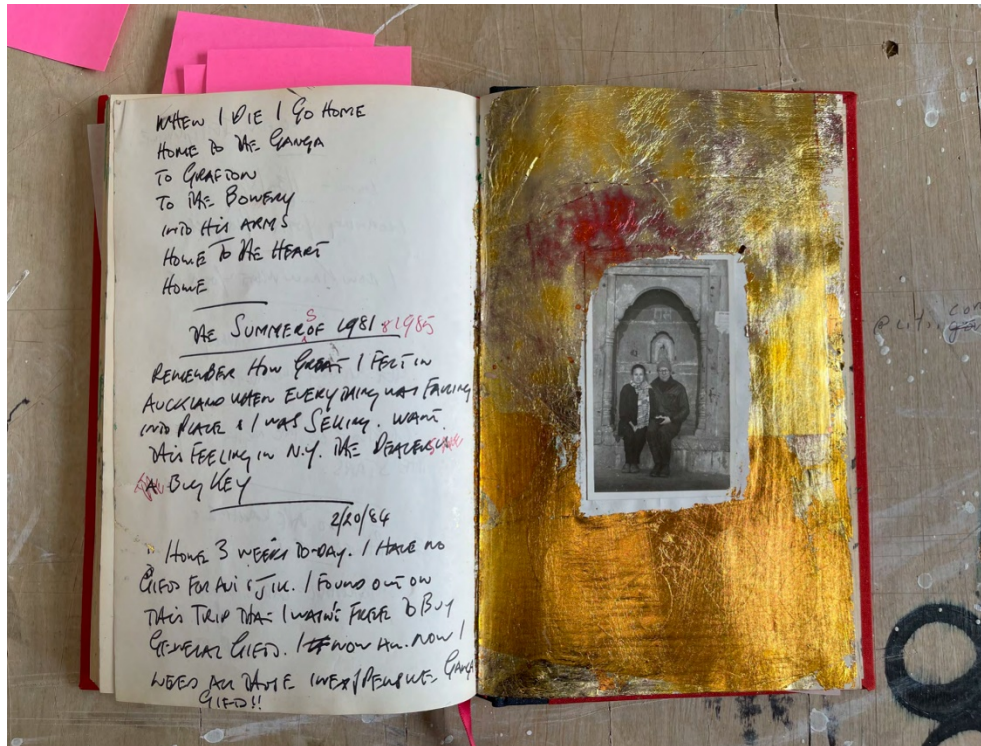 WHEN I DIE I GO HOME
HOME TO THE GANGA
TO GRAFTON
TO THE BOWERY
INTO HIS ARMS
HOME TO THE HEART
HOME
THE SUMMERS OF 1981 & 1985
REMEMBER HOW GREAT I FELT IN
AUCKLAND WHEN EVERYTHING WAS FALLING
INTO PLACE & I WAS SELLING. WANT
THIS FEELING IN N.Y. THE
A BUY KEY
2/20/84
HOME 3 WEEKS TO-DAY. I HAVE NO
GIFTS FOR & JIK. I FOUND OUT ON
THIS TRIP THAT I WASN'T FREE TO BUY
GENERAL GIFTS. I NOW AM. NOW I
NEED INEXPENSIVE GANGA
GIFTS!!